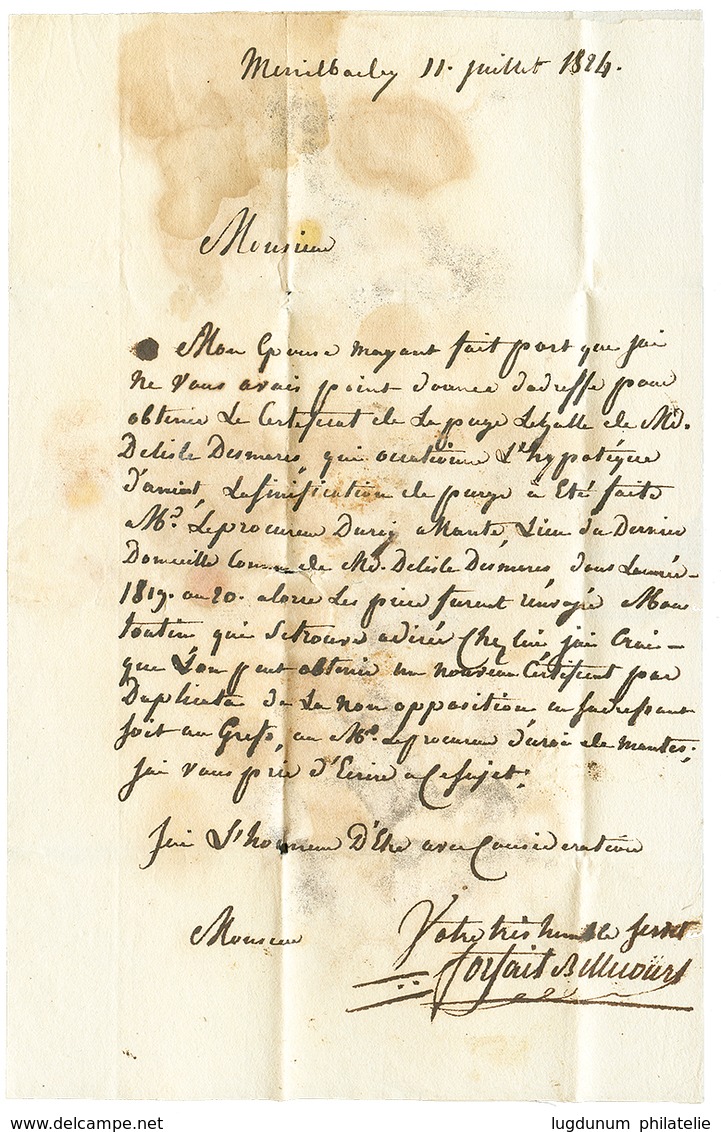 11. juillet 1824.
Monsieur
Mon Epouse mayant fait part que jai
ne vous avais point donnee dadresse pour
obtenir Le Certificat de La purge Legalle de Md.
Delisle Desmares, qui L'hypotéque
Lasinification de purge à Eté faite
Mr. Leprocureur Duroy a Mante, Lieu du Dernier
Domicille de Md. Delisle Desmares dans Lannée
1819. ou 20. alorre Les piece furent renvoyé Mons
toutin qui Setrouve adirée Chez lui jai Crai-
que L'on peut obtenir un nouveau Certificat par
Duplicata de La non opposition en sadressant
soit au Greffe, au Mr. Leprocureur duroi de mantes;
jai vous prie d'Ecrire a Cesujet;
jai L'honneur D'Etre avec Consideration
Monsieur
Votre très humble servt
forfait Bellecourt
www.delcampe.net
lugdunum philatelie